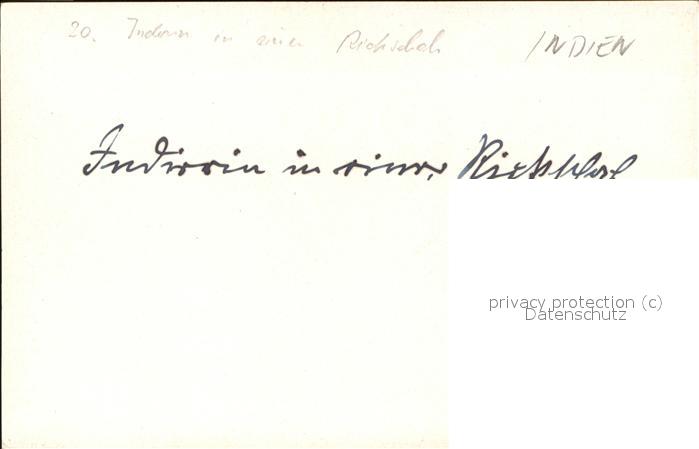 20. Inderin in einer Rickschah INDIEN
Inderin in einer Rickschah
privacy protection (c)
Datenschutz